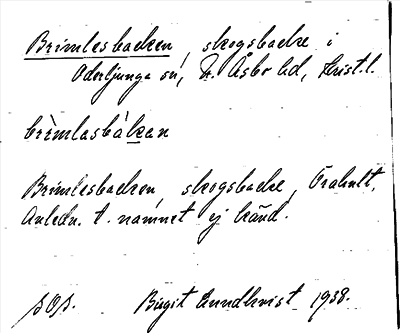 Brimlesbacken, skogsbacke i
Oderljunga sn, N. Åsbo hd, Krist. l.
brìmlasbákan
Brimlesbacken, skogsbacke, Örahult.
Anledn. t. namnet ej känd.
Birgit Lundkvist 1938.